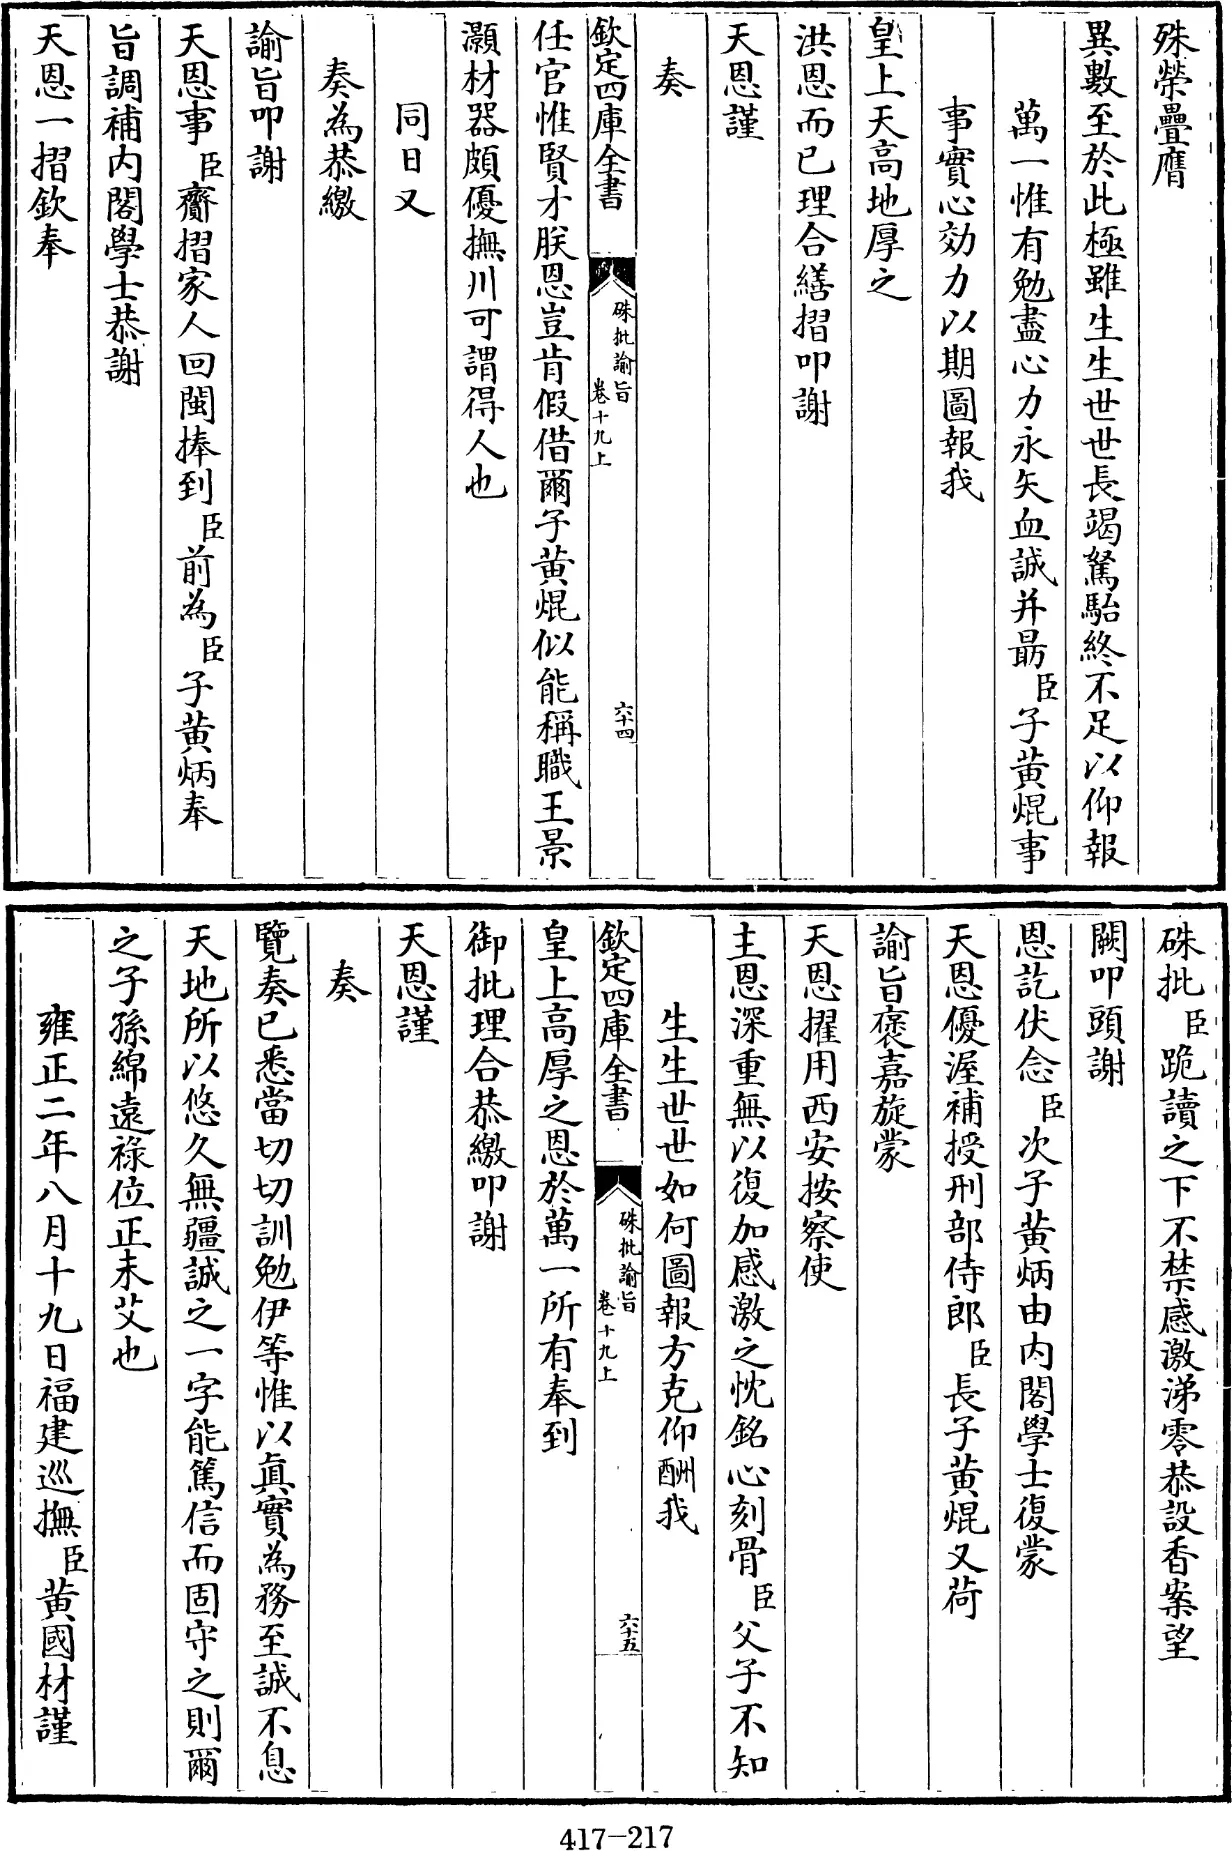 殊榮疊膺
異數至於此極雖生生世世長竭駑駘終不足以仰報
萬一惟有勉盡心力永矢血誠并勗臣子黄焜事
事實心効力以期圖報我
皇上天高地厚之
洪恩而已理合繕摺叩謝
天恩謹
奏
欽定四庫全書
硃批諭旨
卷十九上
六十四
任官惟賢才朕恩豈肯假借爾子黄焜似能稱職王景
灝材器頗優撫川可謂得人也
同日又
奏為恭繳
諭旨叩謝
天恩事臣齎摺家人回閩捧到臣前為臣子黄炳奉
旨調補内閣學士恭謝
天恩一摺欽奉
硃批臣跪讀之下不禁感激涕零恭設香案望
闕叩頭謝
恩訖伏念臣次子黄炳由内閣學士復蒙
天恩優渥補授刑部侍郎臣長子黄焜又荷
諭旨褒嘉旋蒙
天恩擢用西安按察使
主恩深重無以復加感激之忱銘心刻骨臣父子不知
生生世世如何圖報方克仰酬我
欽定四庫全書
硃批諭旨
卷十九上
六十五
皇上高厚之恩於萬一所有奉到
御批理合恭繳叩謝
天恩謹
奏
覽奏已悉當切切訓勉伊等惟以真實為務至誠不息
天地所以悠久無疆誠之一字能篤信而固守之則爾
之子孫綿遠祿位正未艾也
雍正二年八月十九日福建巡撫臣黄國材謹
417-217